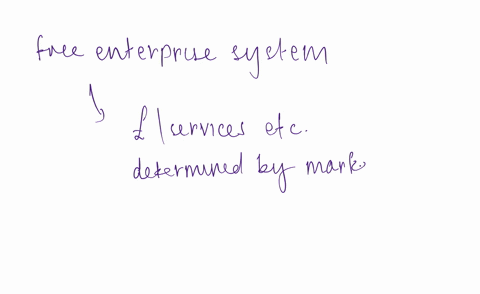 free enterprise system
£/services etc.
determined by mark